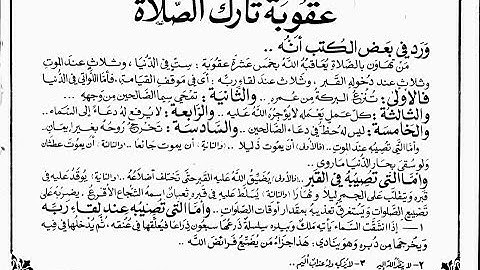 عقوبة تارك الصلاة
ورد في بعض الكتب أنه ..
من تهاون بالصلاة يعاقبه الله بخمس عشرة عقوبة : ست في الدنيا ، وثلاث عند الموت
وثلاث عند دخوله القبر ، وثلاث عند لقاء ربه : أي في موقف القيامة ، فأما اللواتي في الدنيا
فالأولى : تنزع البركة من عمره .. والثانية : تمحى سيما الصالحين من وجهه ...
والثالثة : كل عمل يعمله لا يؤجره الله عليه .. والرابعة : لا يرفع له دعاء إلى السماء ..
والخامسة : ليس له حظ في دعاء الصالحين .. والسادسة : تخرج روحه بغير إيمان.
وأما التي تصيبه عند الموت .. فالأولى : أن يموت ذليلا .. والثانية : أن يموت جائعا .. والثالثة : أن يموت عطشان
ولو سقي بحار الدنيا ما روي
وأما التي تصيبه في القبر .. فالأولى : يضيق الله عليه القبر حتى تختلف أضلاعه .. والثانية : يوقد عليه في
قبره ويتقلب على الجمر ليلا ونهارا والثالثة : يسلط عليه في قبره ثعبان اسمه الشجاع الأقرع .. يضربه على
تضييع الصلوات ويستغرق تعذيبه بمقدار أوقات الصلوات .. وأما التي تصيبه عند لقاء ربه
١ - إذا انشقت السماء يأتيه ملك وبيده سلسلة ذرعها سبعون ذراعا فيعلقها في عنقه ، ثم يدخلها في فيه
ويخرجها من دبره وهو ينادي : هذا جزاء من يضيع فرائض الله ..
٢ - لا ينظر الله إليه ٣ - لا يزكيه وله عذاب أليم ..